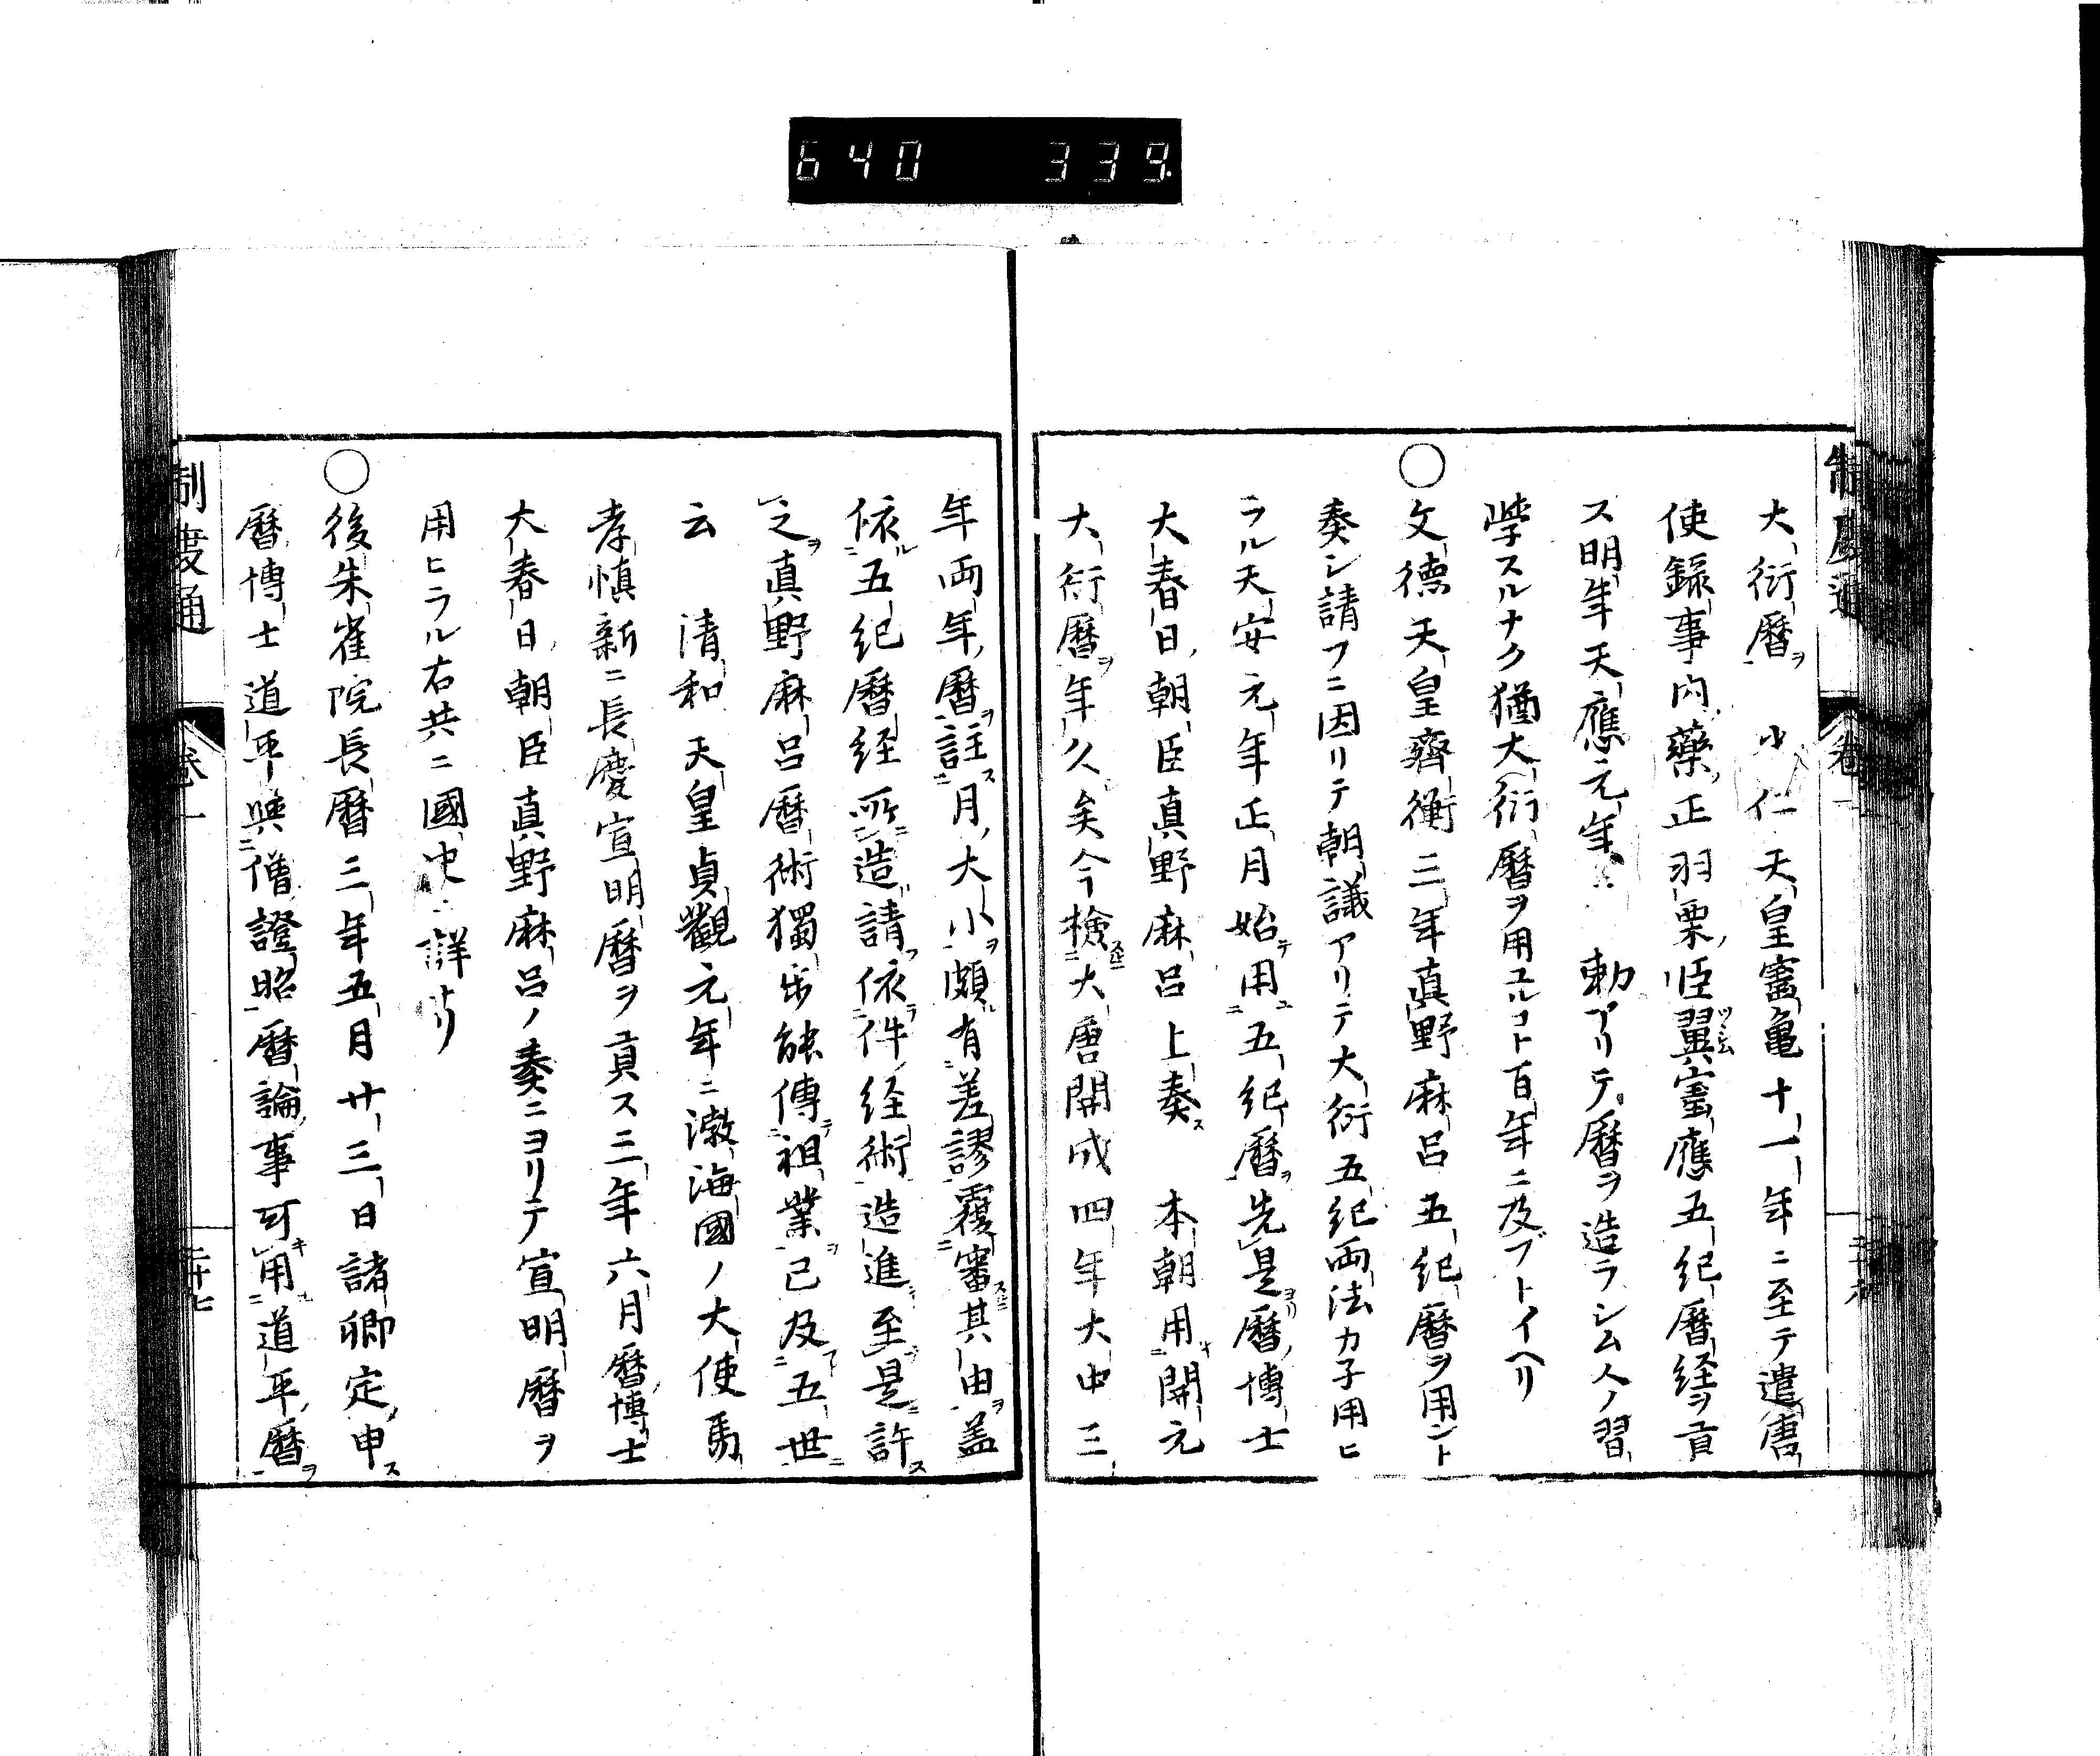 640 339
制度通 卷一
大衍暦ヲ 光仁天皇寳亀十一年ニ至テ遣唐
使録事内藥正羽栗臣翼寳應五紀暦経ヲ貢
ス明年天應元年 勅アリテ暦ヲ造ラシム人ノ習
学スルナク猶大衍暦ヲ用ユルコト百年ニ及ブトイヘリ
○文徳天皇齊衡三年真野麻呂五紀暦ヲ用ント
奏シ請フニ因リテ朝議アリテ大衍五紀両法カ子用ヒ
ラル天安元年正月始テ用ユ二五紀暦ヲ一先レ是ヨリ暦博士
大春日朝臣真野麻呂上奏ス 本朝用ヰ二開元
大衍暦ヲ一年久矣今撿スルニ二大唐開成四年大中三
年両年暦ヲ一註ス二月大小ヲ一頗ル有二差謬一覆二審スルニ其由ヲ一蓋
依ル二五紀暦経所一レ造請フ依ラ二件経術一造進ト至レ是許ス
レ之ヲ真野麻呂暦術獨歩能傳テ二祖業ヲ一已及フ二五世ニ一
云 清和天皇貞觀元年ニ渤海國ノ大使馬
孝慎新ニ長慶宣明暦ヲ貢ス三年六月暦博士
大春日朝臣真野麻呂ノ奏ニヨリテ宣明暦ヲ
用ヒラル右共ニ國史ニ詳ナリ
○後朱雀院長暦三年五月廿三日諸卿定申ス
暦博士道平與二僧證昭一暦論事可キレ用ユ二道平暦ヲ一
制度通 卷一 二十七